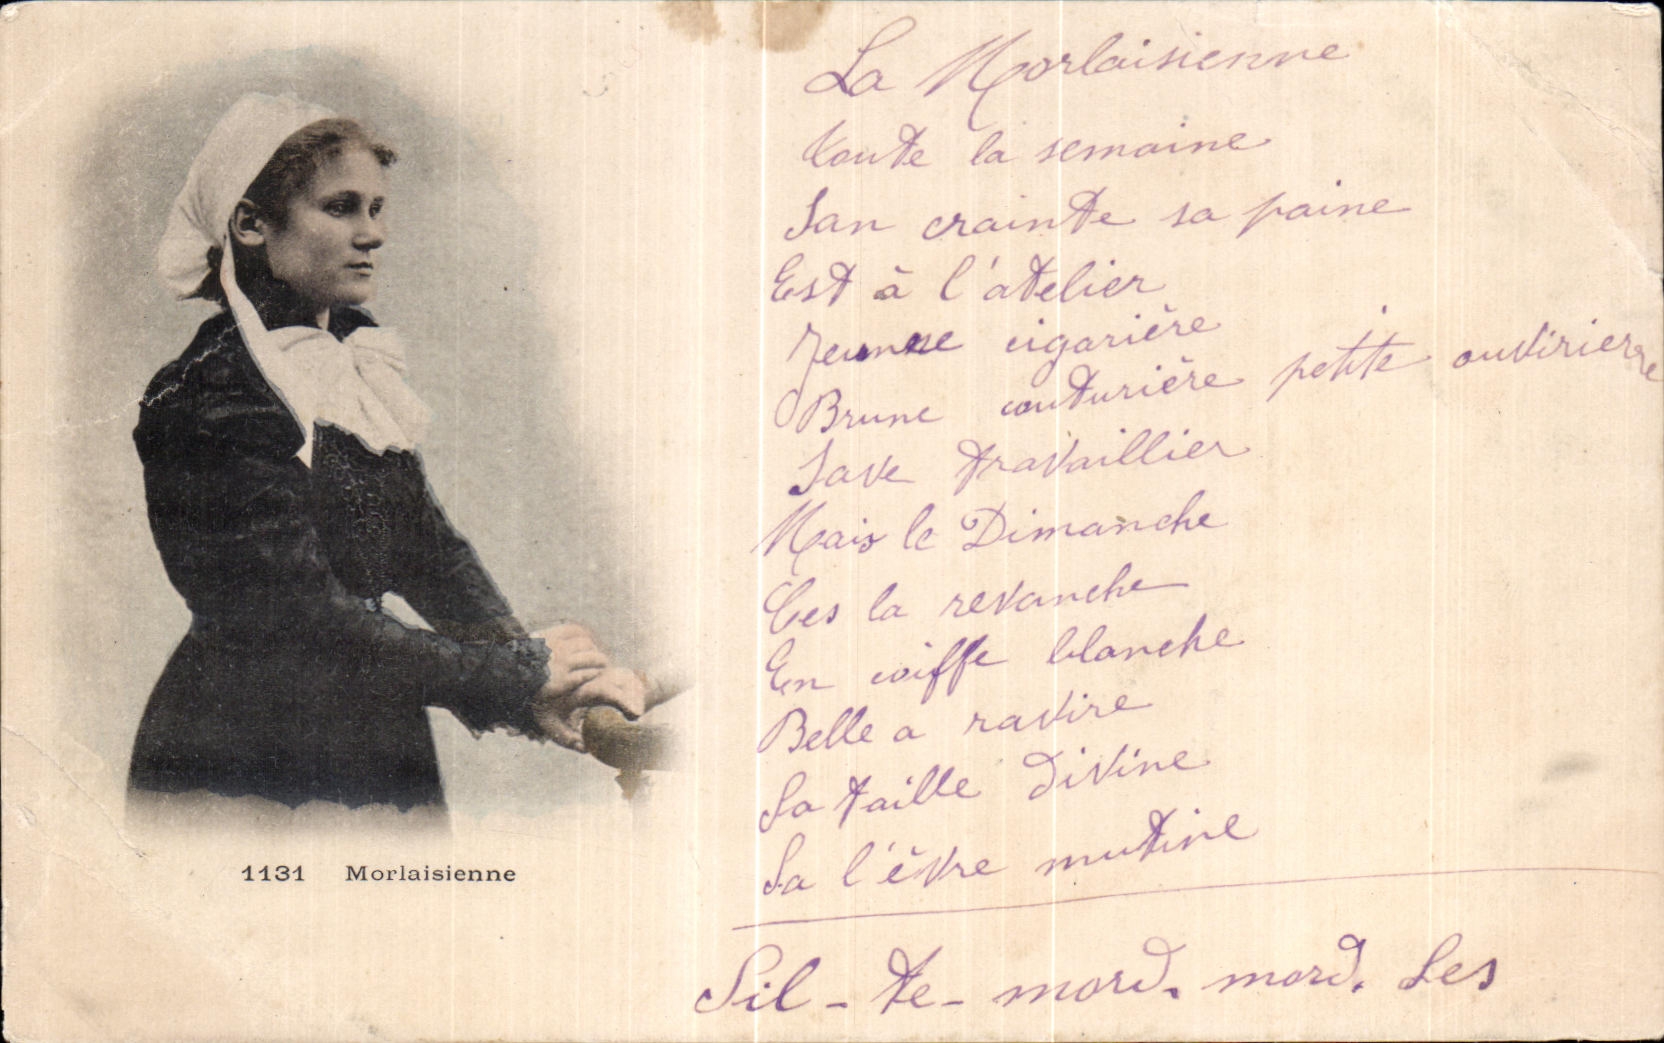 La Morlaisienne
toute la semaine
San crainte sa paine
Est à l'atelier
Jeunne cigarière
Brune couturière petite ouvirierre
Save travaillier
Mais le Dimanche
Ces la revanche
En coiffe blanche
Belle a ravire
Sa taille divine
Sa l'èvre mutine
Sil-te-mord. mord. Les
1131 Morlaisienne